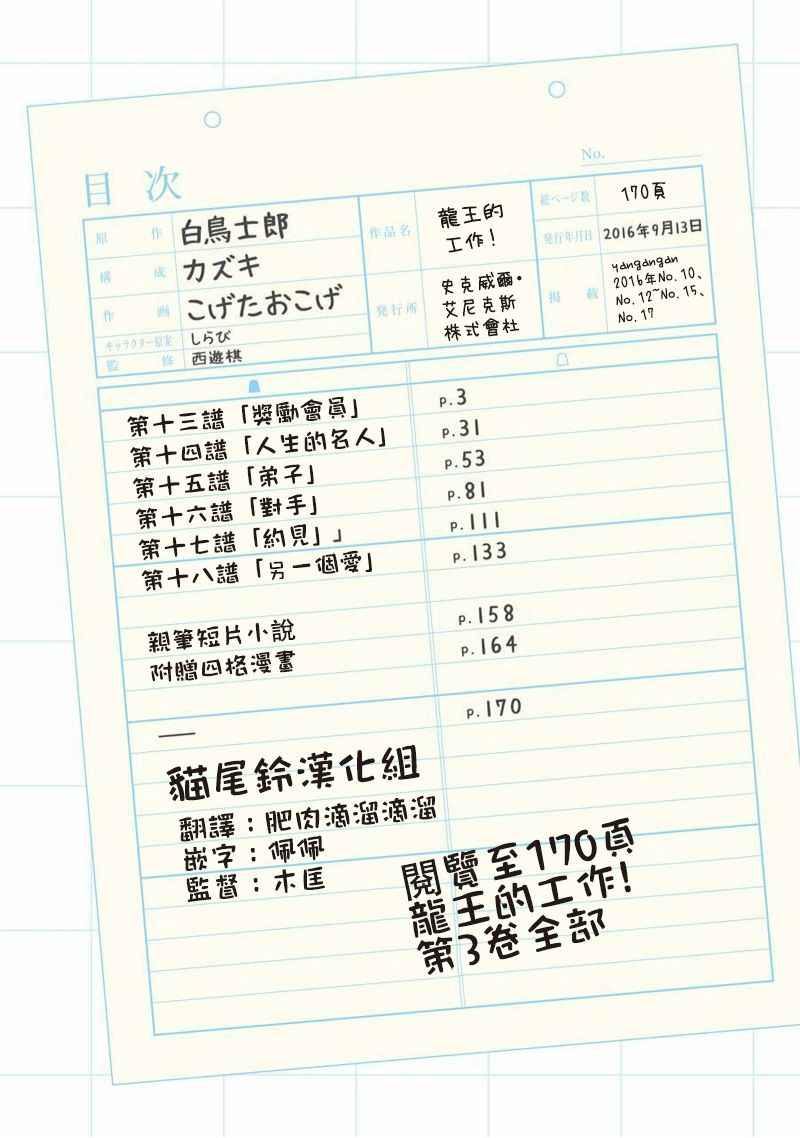 目次
No.
原作 白鳥士郎
構成 カズキ
作画 こげたおこげ
キャラクター原案 しらび
監修 西遊棋
作品名 龍王的
工作！
発行所 史克威爾・
艾尼克斯
株式會社
総ページ数 170頁
発行年月日 2016年9月13日
掲載 yangangan
2016年No.10、
No.12~No.15、
No.17
第十三譜「獎勵會員」 p.3
第十四譜「人生的名人」 p.31
第十五譜「弟子」 p.53
第十六譜「對手」 p.81
第十七譜「約見」」 p.111
第十八譜「另一個愛」 p.133
親筆短片小說 p.158
附贈四格漫畫 p.164
— p.170
貓尾鈴漢化組
翻譯：肥肉滴溜滴溜
嵌字：佩佩
監督：木匡
閱覽至170頁
龍王的工作!
第3卷全部